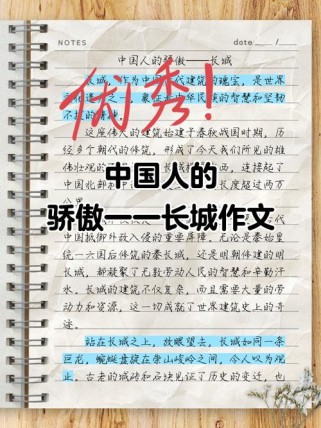 NOTES
date / /
中国人的骄傲——长城
长城，作为中国古代建筑的瑰宝，是世界
优秀！
民族的智慧和坚韧
这座伟大的建筑始建于春秋战国时期，历
经多个朝代的修筑，形成了今天我们所见的雄
伟壮观的
连接起了
中国北部
长度超过两万
中国人的
骄傲——长城作文
代
中国抵御外敌入侵的重要屏障。无论是秦始皇
统一六国后修筑的秦长城，还是明朝修建的明
长城，都凝聚了无数劳动人民的智慧和辛勤汗
水。长城的建筑不仅复杂，而且需要大量的劳
动力和资源，这一切成就了世界建筑史上的奇
迹。
站在长城之上，放眼望去，长城如同一条
巨龙，蜿蜒盘旋在崇山峻岭之间，令人叹为观
止。古老的城砖和石块见证了历史的变迁，也